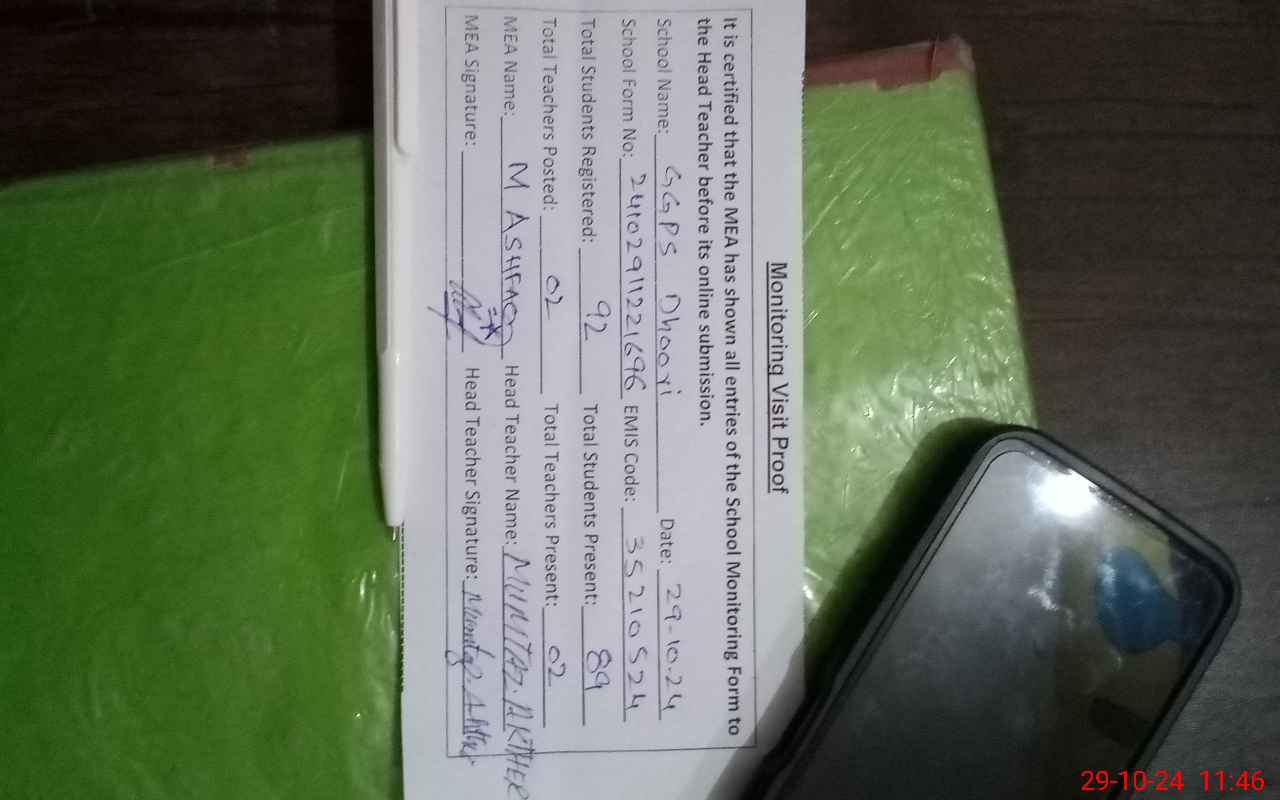 Monitoring Visit Proof
It is certified that the MEA has shown all entries of the School Monitoring Form to
the Head Teacher before its online submission.
School Name: GGPS Dhoori Date: 29-10-24
School Form No: 24102911221696 EMIS Code: 35210524
Total Students Registered: 92 Total Students Present: 89
Total Teachers Posted: 02 Total Teachers Present: 02
MEA Name: M ASHFAQ Head Teacher Name: MUMTAZ. AKTHER
MEA Signature: Head Teacher Signature: Mumtaz Akhter
29-10-24 11:46